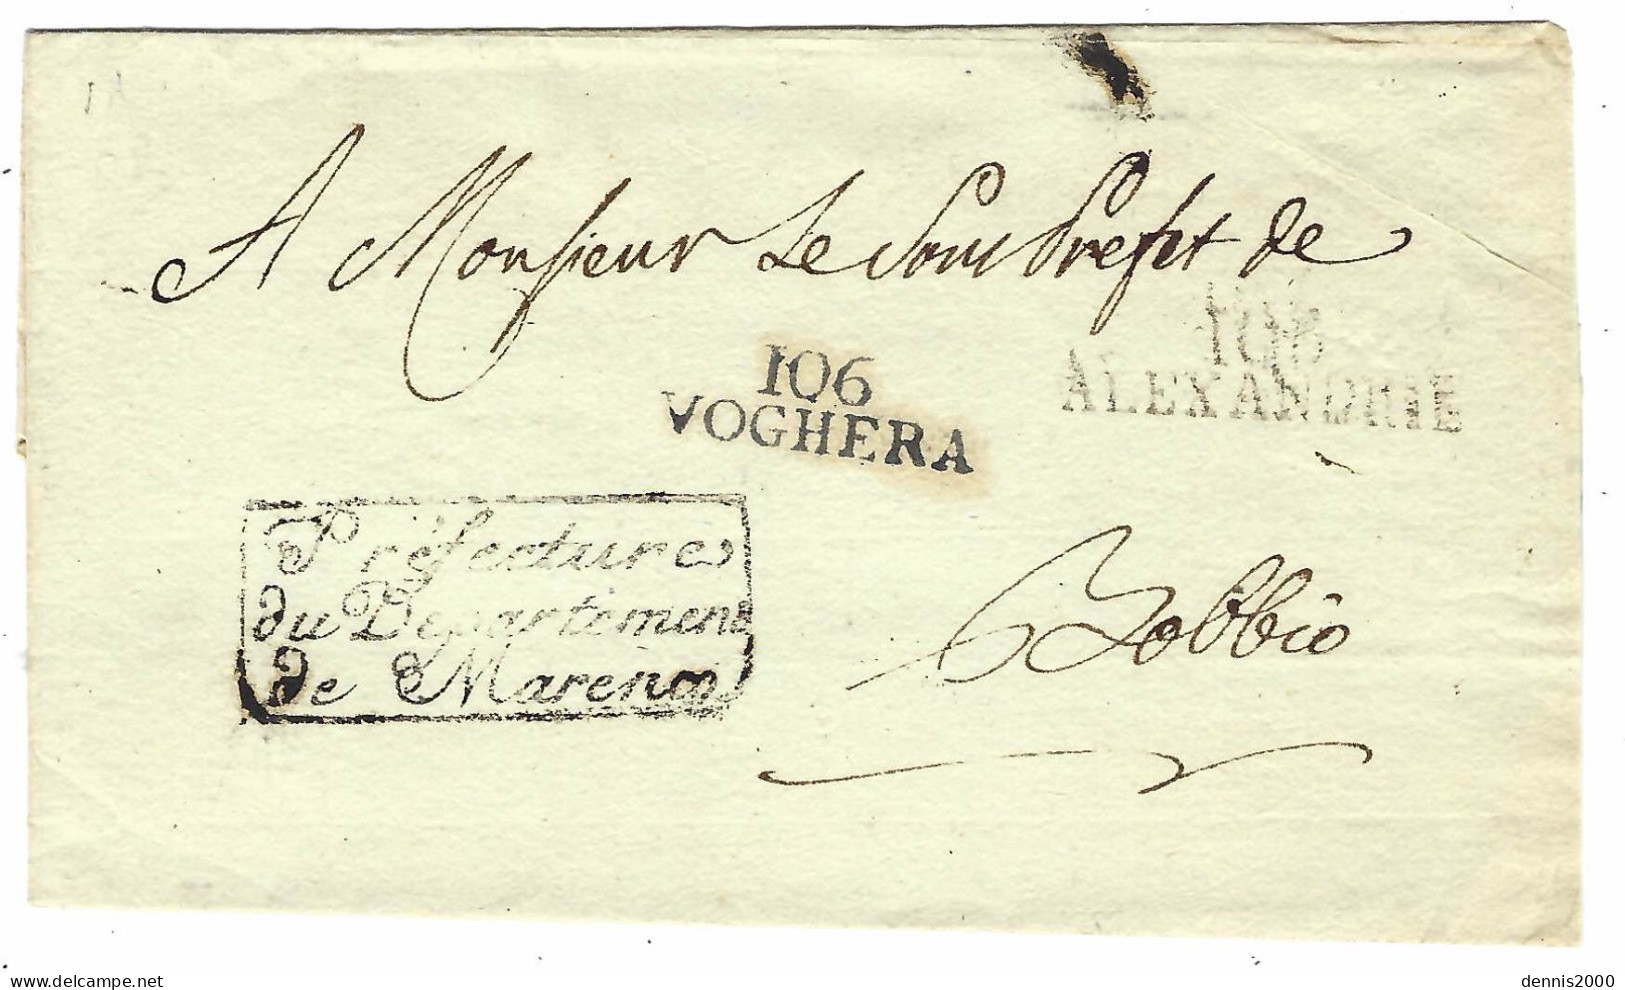 A Monsieur Le Sous Prefet de
106
ALEXANDRIE
106
VOGHERA
Préfecture
du Departement
de Marengo
Bobbio
dennis2000